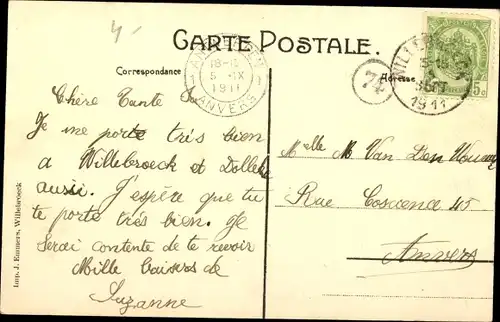 4
CARTE POSTALE.
Correspondance
Adresse
ANTWERPEN
18-19
5 IX
1911
1 1
ANVERS
74
SEPT
1911
Imp. J. Eemers, Willebroeck
Chère Tante
Je me porte très bien
a Willebroeck et
aussi. J'espère que tu
te porte très bien. Je
serai contente de te revoir
Mille baisers de
Suzanne
Melle M. Van Den
Rue Coscence 45
Anvers